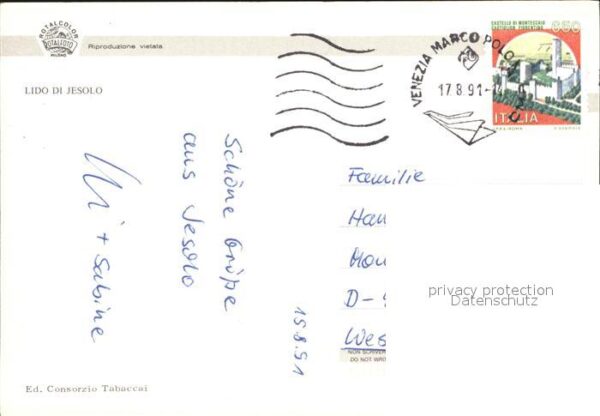 ROTALCOLOR
ROTALFOTO
MILANO
Riproduzione vietata
LIDO DI JESOLO
Schöne Grüße
aus Jesolo
Uli + Sabine
15.8.91
VENEZIA MARCO POLO
17.8.91-14
CASTELLO DI MONTECCHIO
CASTIGLION FIORENTINO
650
ITALIA
Familie
Han
Mon
D-
Wes
NON SCRIVER
DO NOT WRO
privacy protection
Datenschutz
Ed. Consorzio Tabaccai